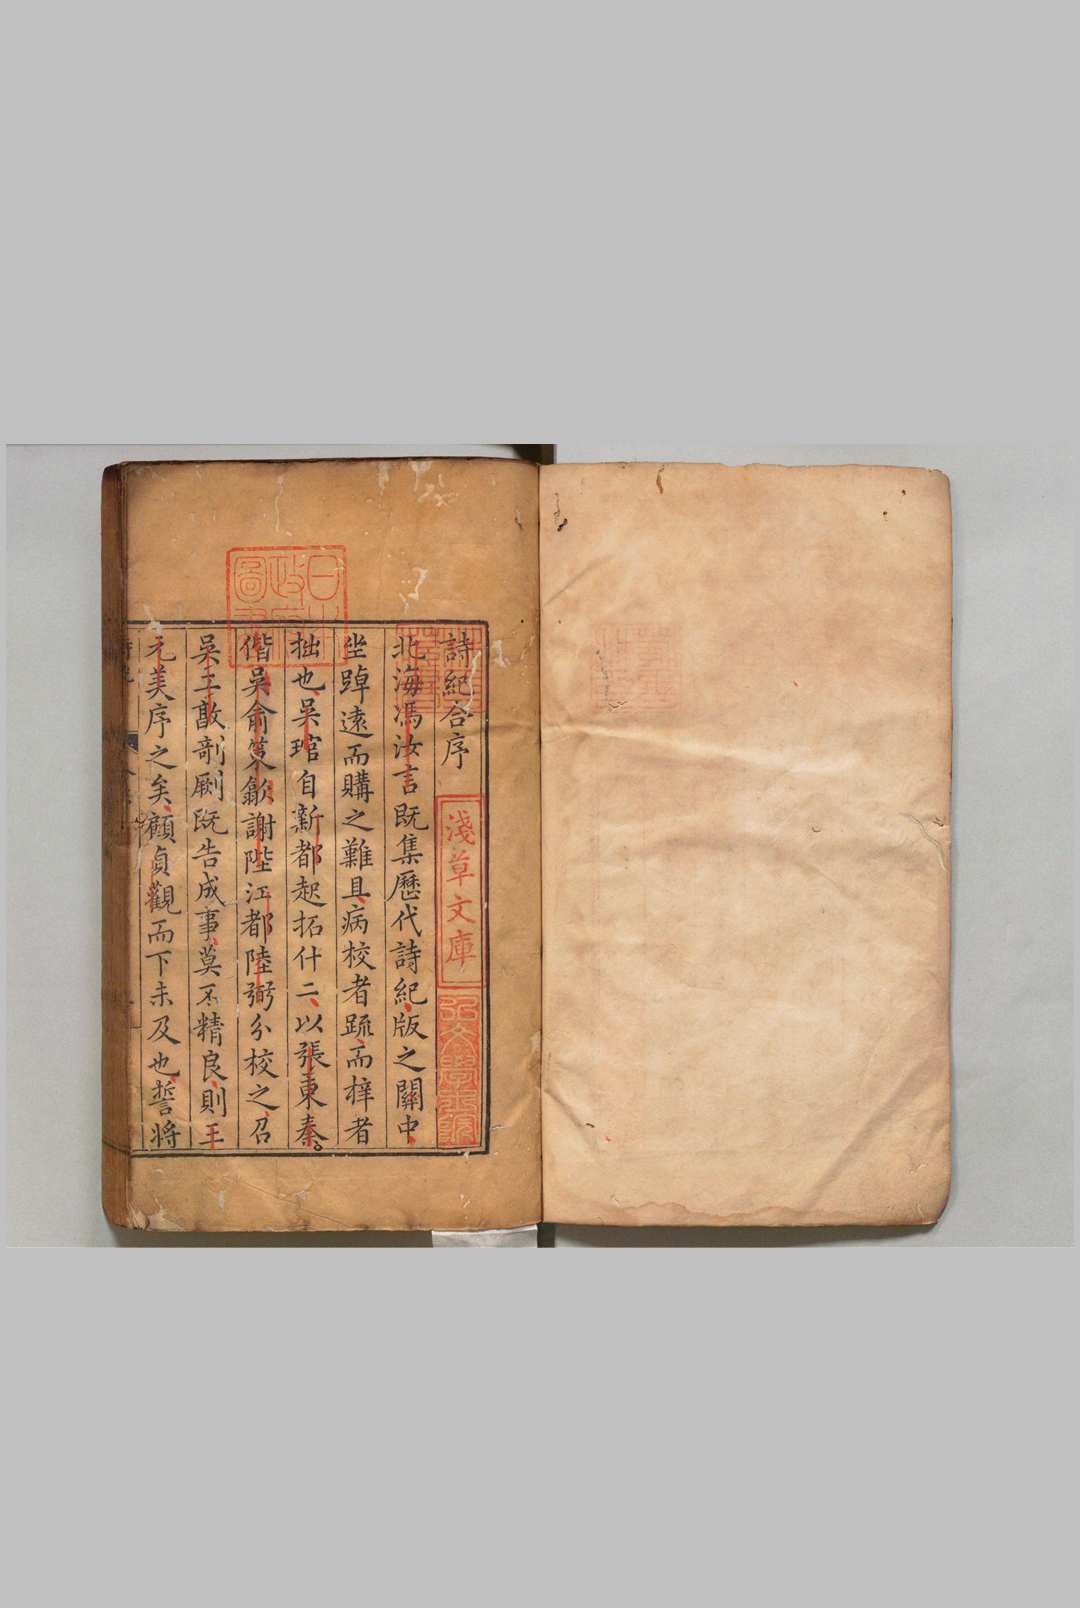 詩紀合序
淺草文庫
弘文學士院
日本
政府
圖書
北海馮汝言既集歷代詩紀版之關中
坐踔遠而購之難且病校者踈而梓者
拙也吳琯自新都起拓什二以張東秦
偕吳俞策歙謝陛江都陸弼分校之召
吳工敦剞劂既告成事莫不精良則王
元美序之矣顧貞觀而下未及也誓將